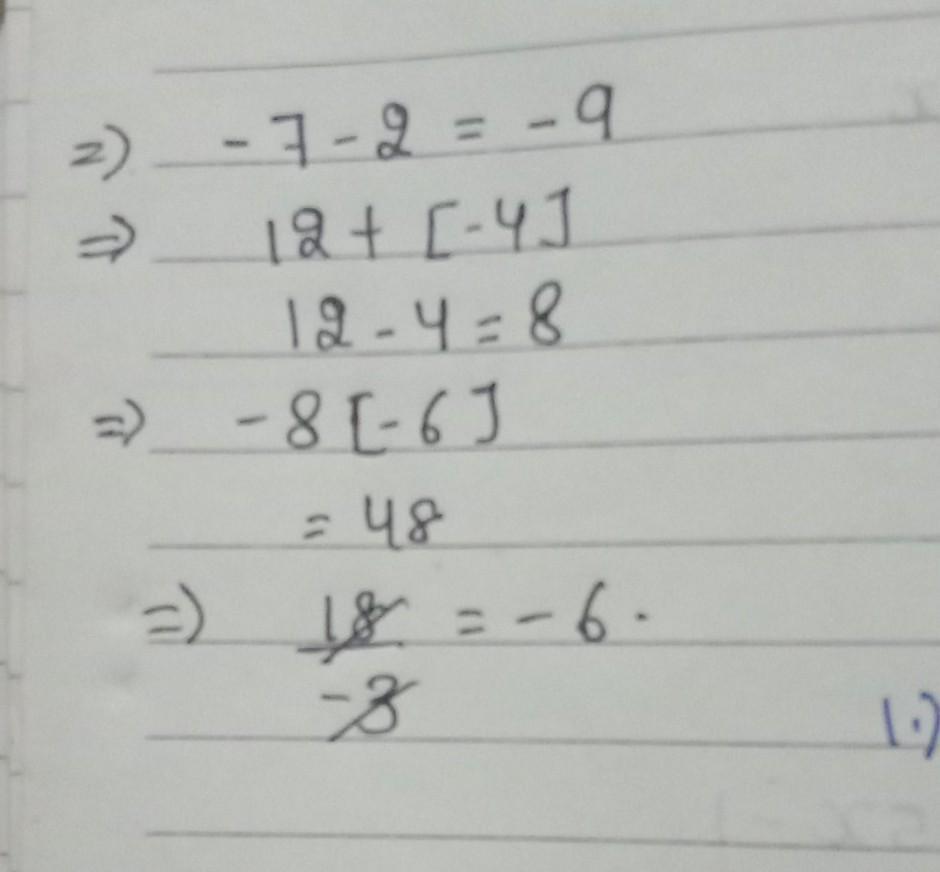 =) -7-2 = -9
⇒ 12+ [-4]
12-4=8
=) -8[-6]
= 48
=) 18 = -6.
-3
1.)